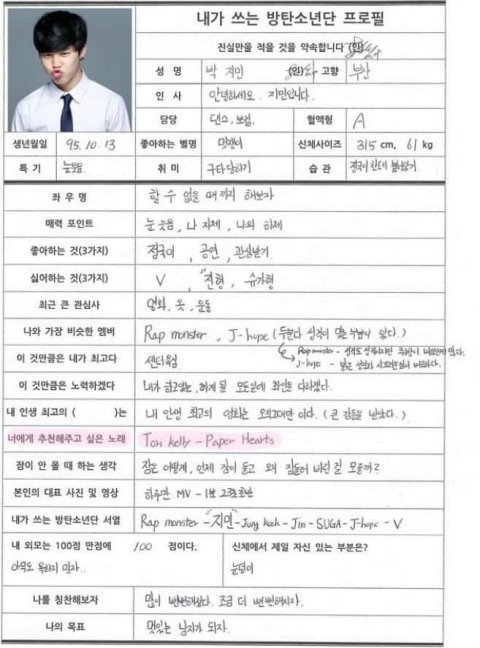 내가 쓰는 방탄소년단 프로필
진실만을 적을 것을 약속합니다 (인)
성 명 박 지민 (인) 고향 부산
인 사 안녕하세요. 지민입니다.
담당 댄스, 보컬. 혈액형 A
생년월일 95. 10. 13 좋아하는 별명 망개떡 신체사이즈 315 cm, 61 kg
특 기 눈웃음. 취 미 구타당하기 습 관
좌 우 명 할 수 없을 때까지 해보자
매력 포인트 눈웃음, 나 자체, 나의 하체
좋아하는 것(3가지) 정국이, 공연, 관심받기
싫어하는 것(3가지) V, "진형", 슈가형
최근 큰 관심사 영화, 옷, 운동
나와 가장 비슷한 멤버 Rap monster, J-hope (두분다 성격이 맞는 부분이 있다.)
Rap monster -
J-hope -
이 것만큼은 내가 최고다 섹시웨이브
이 것만큼은 노력하겠다 내가 하고있는, 하게 될 모든일에 최선을 다하겠다.
내 인생 최고의 ( )는 내 인생 최고의 영화는 오직그대만 이다. (큰 감동을 받았다.)
너에게 추천해주고 싶은 노래 Tori kelly - Paper Hearts
잠이 안 올 때 하는 생각 잠은 어떻게, 언제 잠이 들고 왜 잠들어 버린걸 모를까?
본인의 대표 사진 및 영상 하루만 MV - 1분
내가 쓰는 방탄소년단 서열 Rap monster - "지민" - Jung kook - Jin - SUGA - J-hope - V
내 외모는 100점 만점에 100 점이다. 신체에서 제일 자신 있는 부분은?
아무도 욕하지 말자.. 눈덩이
나를 칭찬해보자 많이 뻔뻔해졌다. 조금 더 뻔뻔해지자.
나의 목표 멋있는 남자가 되자.